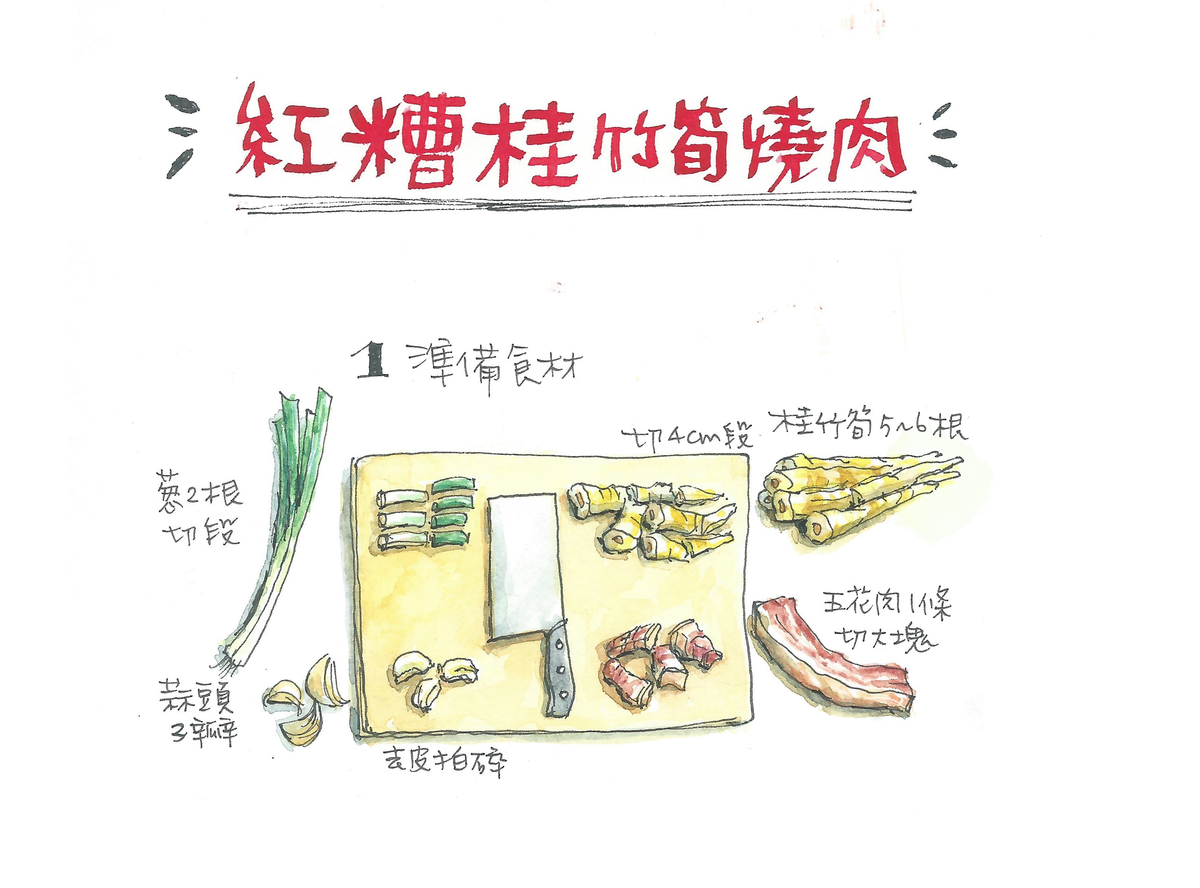 紅糟桂竹筍燒肉
1 準備食材
切4cm段
桂竹筍5~6根
蔥2根
切段
五花肉1條
切大塊
蒜頭
3瓣
去皮拍碎